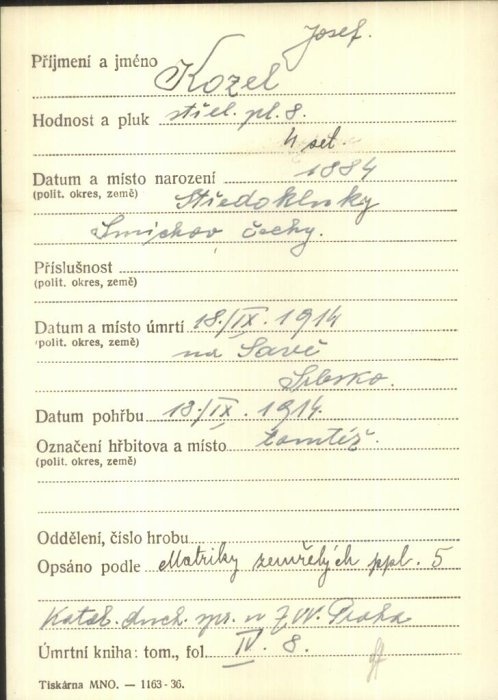 Josef.
Příjmení a jméno Kozel
Hodnost a pluk střel. pl. 8.
4 set.
Datum a místo narození 1884
(polit. okres, země) Středokluky
Smíchov Čechy.
Příslušnost
(polit. okres, země)
Datum a místo úmrtí 18./IX. 1914
(polit. okres, země) na Sávě
Srbsko.
Datum pohřbu 18./IX. 1914.
Označení hřbitova a místo tamtéž.
(polit. okres, země)
Oddělení, číslo hrobu
Opsáno podle Matriky zemřelých ppl. 5
Katol. duch. spr. u Z.V.V. Praha
Úmrtní kniha: tom., fol. IV. 8.
Tiskárna MNO. — 1163-36.